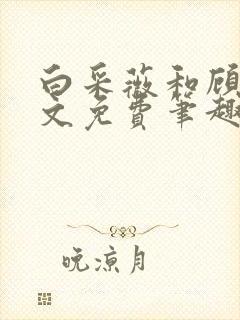 白采薇和顾
文免费笔趣
晚凉月